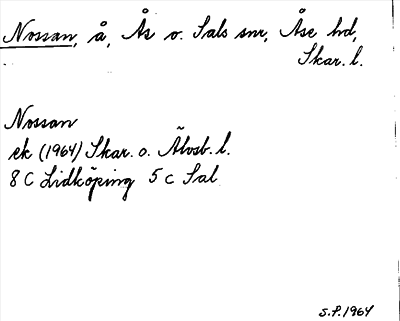 Nossan, å, Ås o. Sals snr, Åse hd,
Skar. l.
Nossan
ek (1964) Skar. o. Älvsb. l.
8 C Lidköping 5 c Sal
S.P. 1964